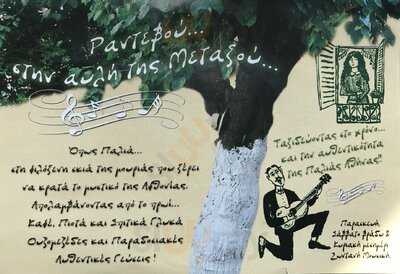 Ραντεβού...
στην αυλή της Μεταξού...
Όπως Παλιά...
στη φιλόξενη σκιά της μουριάς που ξέρει
να κρατά το μυστικό της Αφθονίας.
Απολαμβάνοντας από το πρωί...
Καφέ, Ποτά και Σπιτικά Γλυκά
Ουζομεζέδες και Παραδοσιακές
Αυθεντικές Γεύσεις!
Ταξιδεύοντας στο χρόνο...
και την αυθεντικότητα
της Παλιάς Αθήνας!!
Παρασκευή
Σάββατο βράδυ &
Κυριακή μεσημέρι
Ζωντανή Μουσική